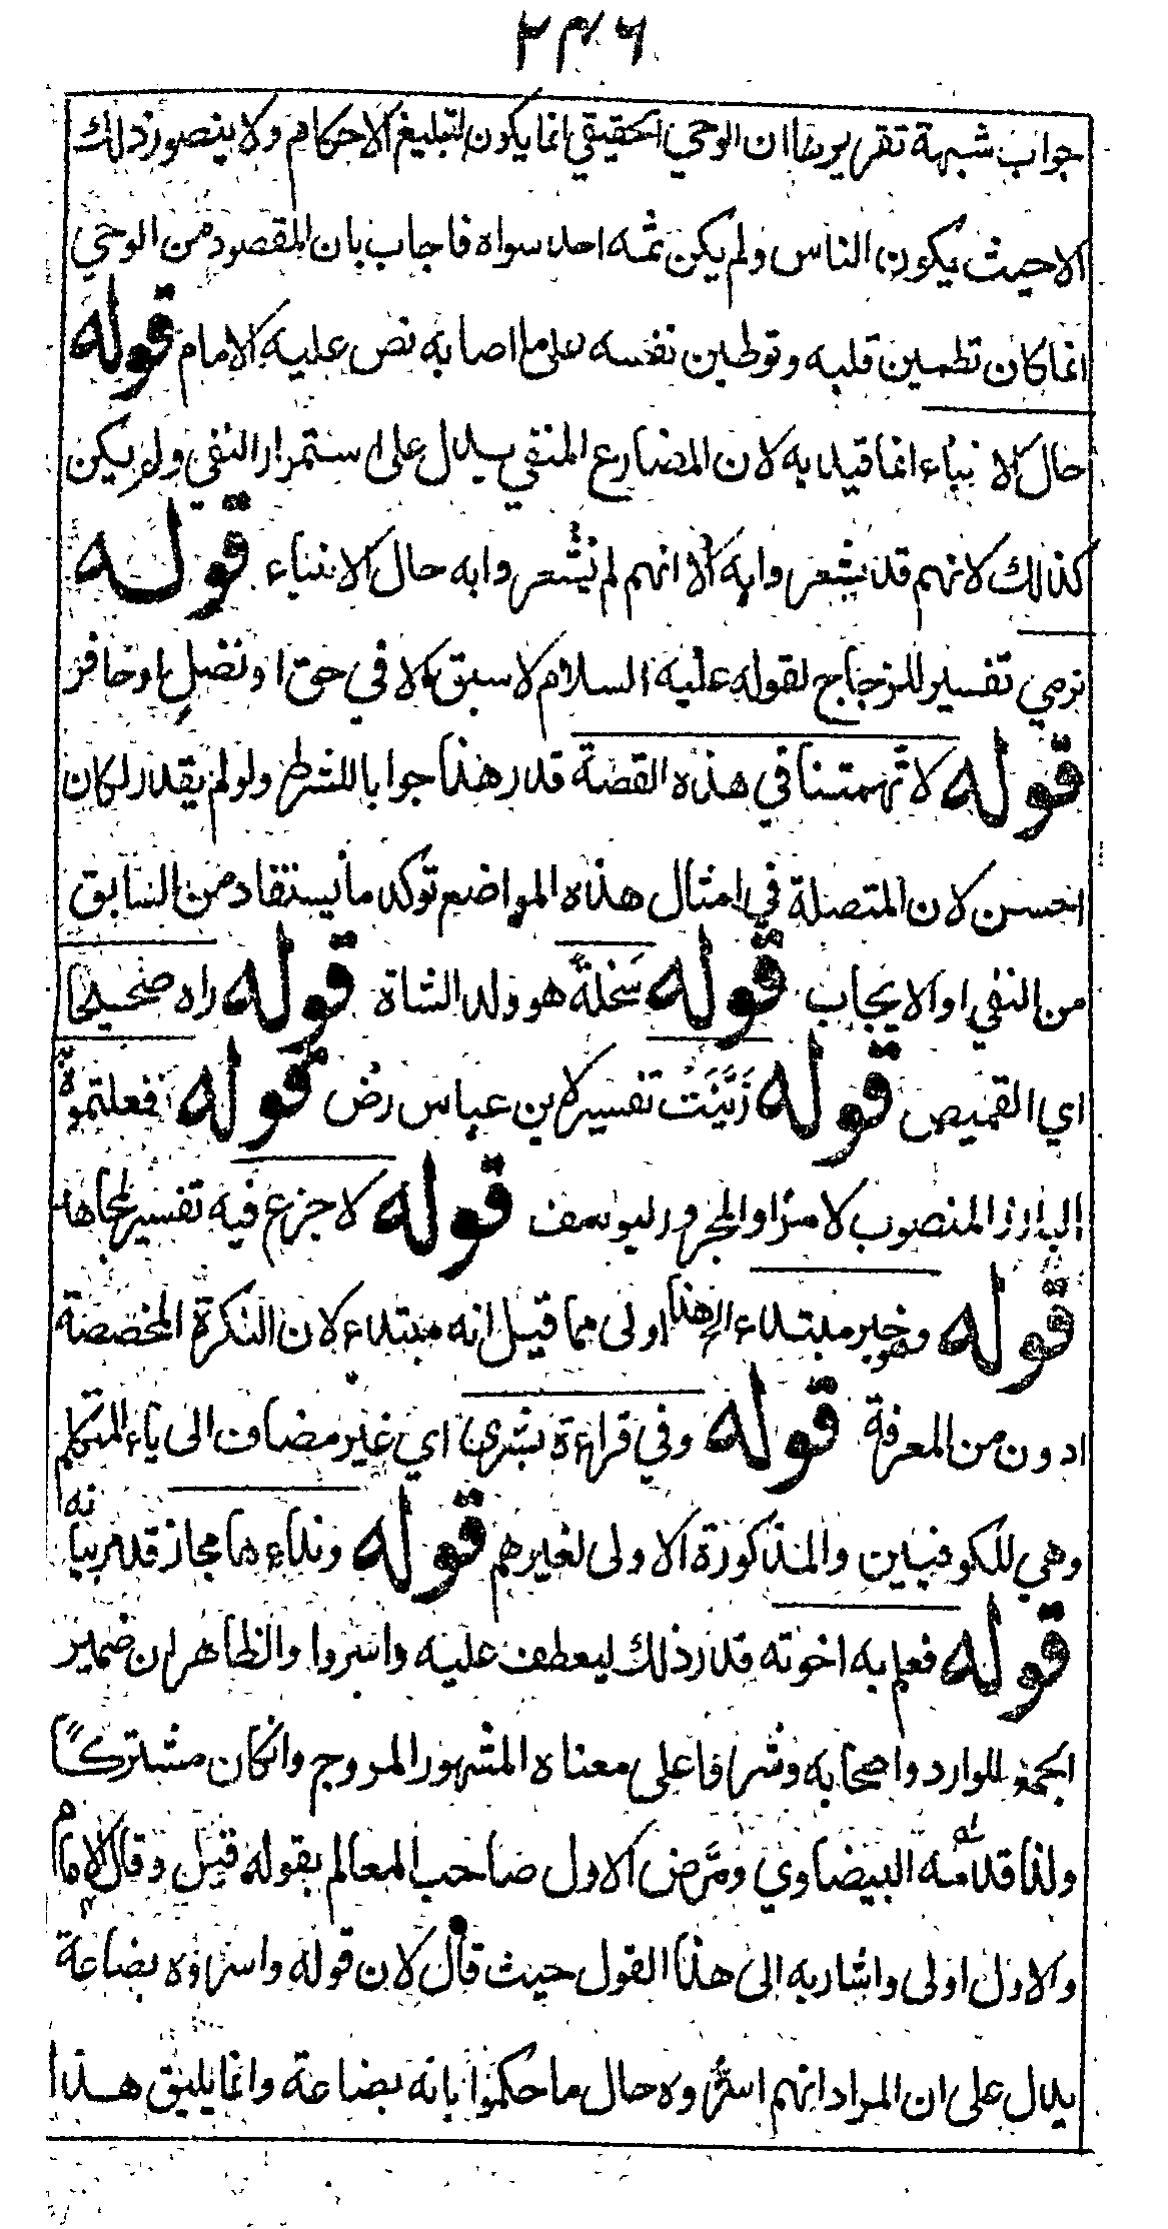 ٢٣٦
جواب شبهة تقريرها ان الوحي الحقيقي انما يكون لتبليغ الاحكام ولا يتصور ذلك
الا حيث يكون الناس ولم يكن ثمه احد سواه فاجاب بان المقصود من الوحي
انما كان تطمين قلبه وتوطين نفسه على ما اصابه نص عليه الامام قوله
حال الانباء انما قيد به لان المضارع المنفي يدل على استمرار النفي ولم يكن
كذلك لانهم قد شعروا به الا انهم لم يشعروا به حال الانباء قوله
نرمي تفسير للزجاج لقوله عليه السلام لا سبق الا في خف او نصل او حافر
قوله لا تهمتنا في هذه القصة قدر هذا جوابا للشرط ولو لم يقدر لكان
احسن لان المتصلة في امثال هذه المواضع توكد ما يستفاد من السابق
من النفي او الايجاب قوله سَخلةً هو ولد الشاة قوله راه صحيحا
اي القميص قوله زَيَّنَتْ تفسير لابن عباس رض قوله فعلتموه
البارز المنصوب لامرًا والمجرور ليوسف قوله لا جزع فيه تفسير لمجاهد
قوله وهو خبر مبتداء الخ هذا اولى مما قيل انه مبتداء لان النكرة المخصصة
ادون من المعرفة قوله وفي قراءة بشرى اي غير مضاف الى ياء المتكلم
وهي للكوفيين والمذكورة الاولى لغيرهم قوله ونداءها مجاز قد مر بيانه
قوله فعلم به اخوته قدر ذلك ليعطف عليه واسروا والظاهر ان ضمير
الجمع للوارد واصحابه وشرا فاعلى معناه المشهور المروج وانكان مشتركًا
ولذا قدمه البيضاوي ومَرَّض الاول صاحب المعالم بقوله قيل وقال الامام
والاول اولى واشار به الى هذا القول حيث قال لان قوله واسروه بضاعة
يدل على ان المراد انهم اسَرُّوه حال ما حكموا بانه بضاعة وانما يليق هذا